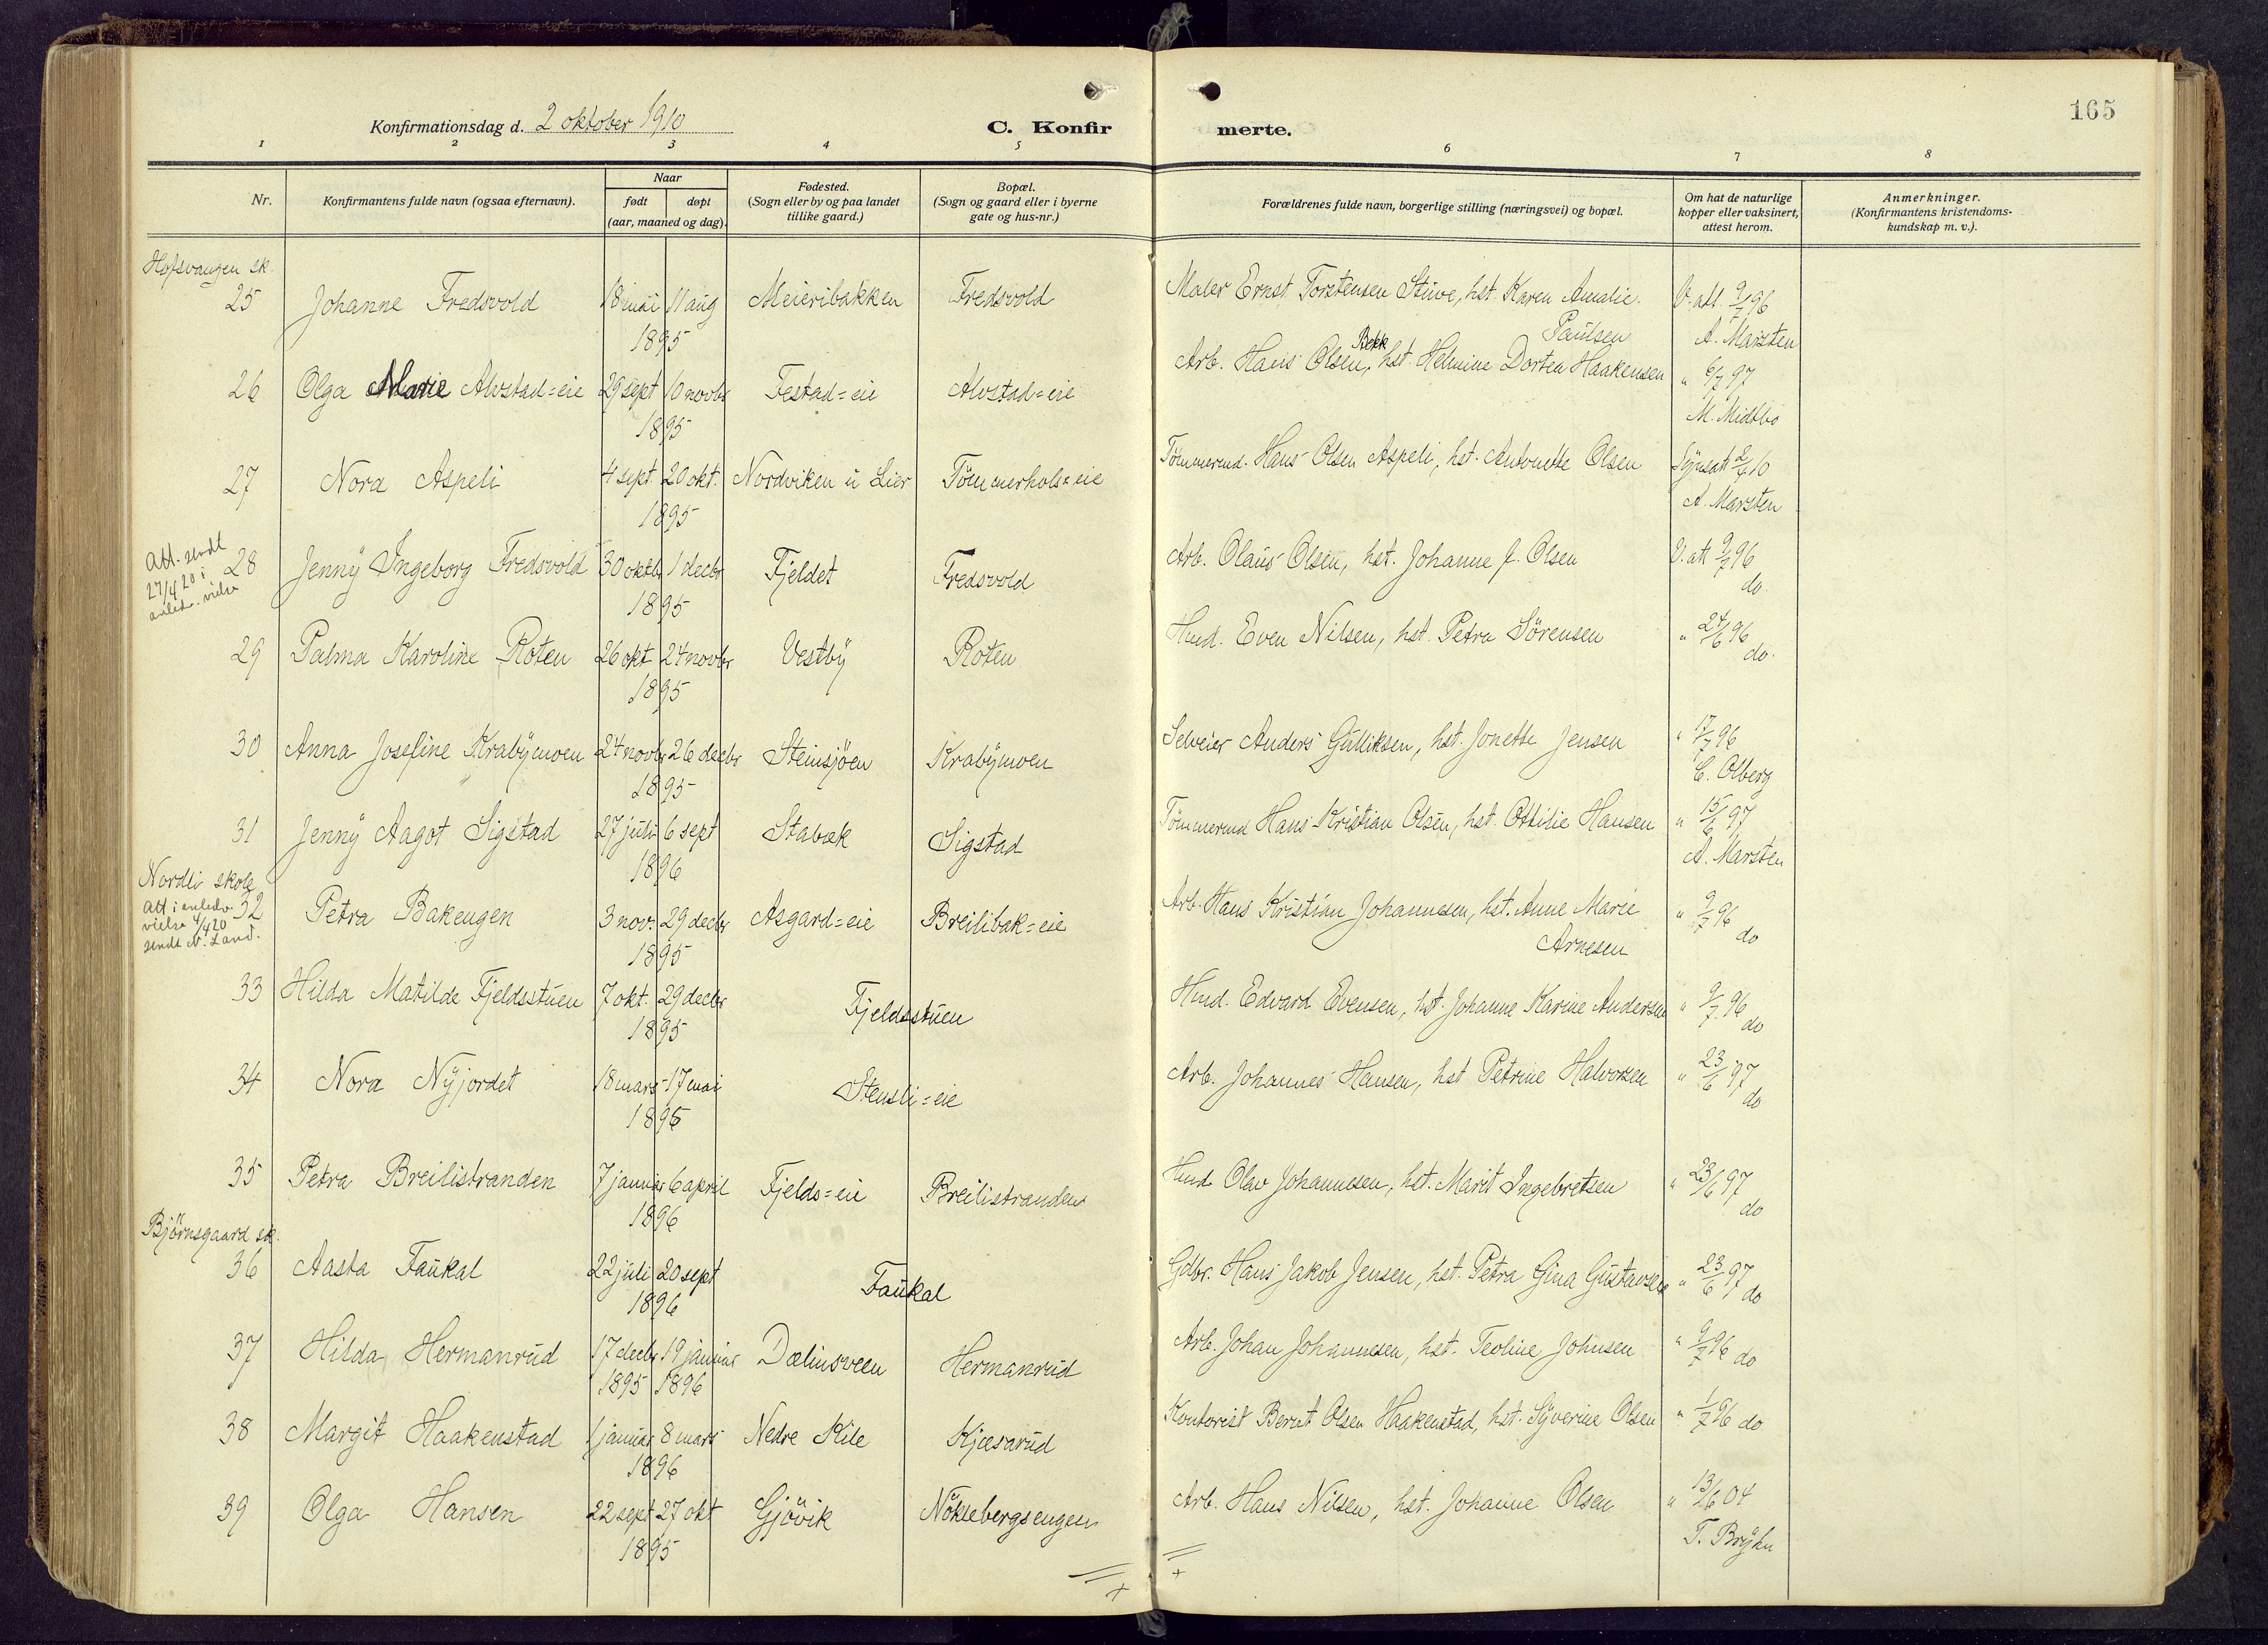 165
Konfirmationsdag d. 2 oktober 1910
C. Konfir merte.
1 2 3 4 5 6 7 8
Nr.
Konfirmantens fulde navn (ogsaa efternavn).
Naar
født døpt
(aar, maaned og dag).
Fødested.
(Sogn eller by og paa landet
tillike gaard.)
Bopæl.
(Sogn og gaard eller i byerne
gate og hus-nr.)
Forældrenes fulde navn, borgerlige stilling (næringsvei) og bopæl.
Om hat de naturlige
kopper eller vaksinert,
attest herom.
Anmerkninger.
(Konfirmantens kristendoms-
kundskap m. v.).
Hofsvangen sk.
25 Johanne Fredsvold 18 mai 11 aug Meieribakken Fredsvold Maler Ernst Torstensen Stuve, hst. Karen Amalie V. att. 9/7 96
1895 Paulsen A. Marsten
26 Olga Marie Alvstad=eie 29 sept 10 novbr Festad=eie Alvstad=eie Arb. Hans Olsen Bekk, hst. Helmine Dortea Haakensen " 6/7 97
1895 M. Midtbo
27 Nora Aspeli 4 sept. 20 okt. Nordviken i Lier Tömmerhols=eie Tömmermd. Hans Olsen Aspeli, hst. Antonette Olsen Synsatt 2/6 10
1895 A. Marsten
Att. sendt
27/4 20 i
anledn. vielse
28 Jenny Ingeborg Fredsvold 30 oktbr 1 decbr Fjeldet Fredsvold Arb. Olaus Olsen, hst. Johanne J. Olsen V. att 9/7 96
1895 do.
29 Palma Karoline Roten 26 okt 24 novbr Vestby Roten Hmd. Even Nilsen, hst. Petra Sörensen " 24/6 96
1895 do.
30 Anna Josefine Krabymoen 24 novbr 26 decbr Steinsjöen Krabymoen Selveier Anders Gulliksen, hst. Jonette Jensen " 17/7 96
1895 C. Olberg
31 Jenny Aagot Sigstad 27 juli 6 sept Stabæk Sigstad Tömmermd Hans Kristian Olsen, hst. Ottilie Hansen " 15/6 97
1896 A. Marsten
Nordli skole
Att i anledn.
vielse 4/4 20
sendt N. Land.
32 Petra Bakengen 3 nov. 29 decbr Asgard=eie Breilibak=eie Arb. Hans Kristian Johannesen, hst. Anne Marie " 9/7 96
1895 Arnesen do
33 Hilda Matilde Fjeldsstuen 7 okt. 29 decbr Fjeldsstuen Hmd. Edvard Evensen, hst. Johanne Karine Andersen " 9/7 96
1895 do
34 Nora Nyjordet 18 mars 17 mai Stensli=eie Arb. Johannes Hansen, hst Petrine Halvorsen " 23/6 97
1896 do
35 Petra Breilistranden 7 januar 6 april Fjelds=eie Breilistranden Hmd Olav Johannesen, hst. Marit Ingebretsen " 23/6 97
1896 do
Björnsgaard sk.
36 Aasta Faukal 22 juli 20 sept Faukal Gdbr. Hans Jakob Jensen, hst. Petra Gina Gustavsen " 23/6 97 do
1896
37 Hilda Hermanrud 17 decbr 19 januar Dælinsveen Hermanrud Arb. Johan Johannesen, hst. Teoline Johnsen " 9/7 96 do
1895 1896
38 Margit Haakenstad 1 januar 8 mars Nedre Kile Kjæsarud Kontorist Bernt Olsen Haakenstad, hst. Syverine Olsen " 1/7 96 do
1896
39 Olga Hansen 22 sept 27 okt Gjövik Nöklebergsengen Arb. Hans Nilsen, hst. Johanne Olsen " 13/6 04
1895 T. Bryhn